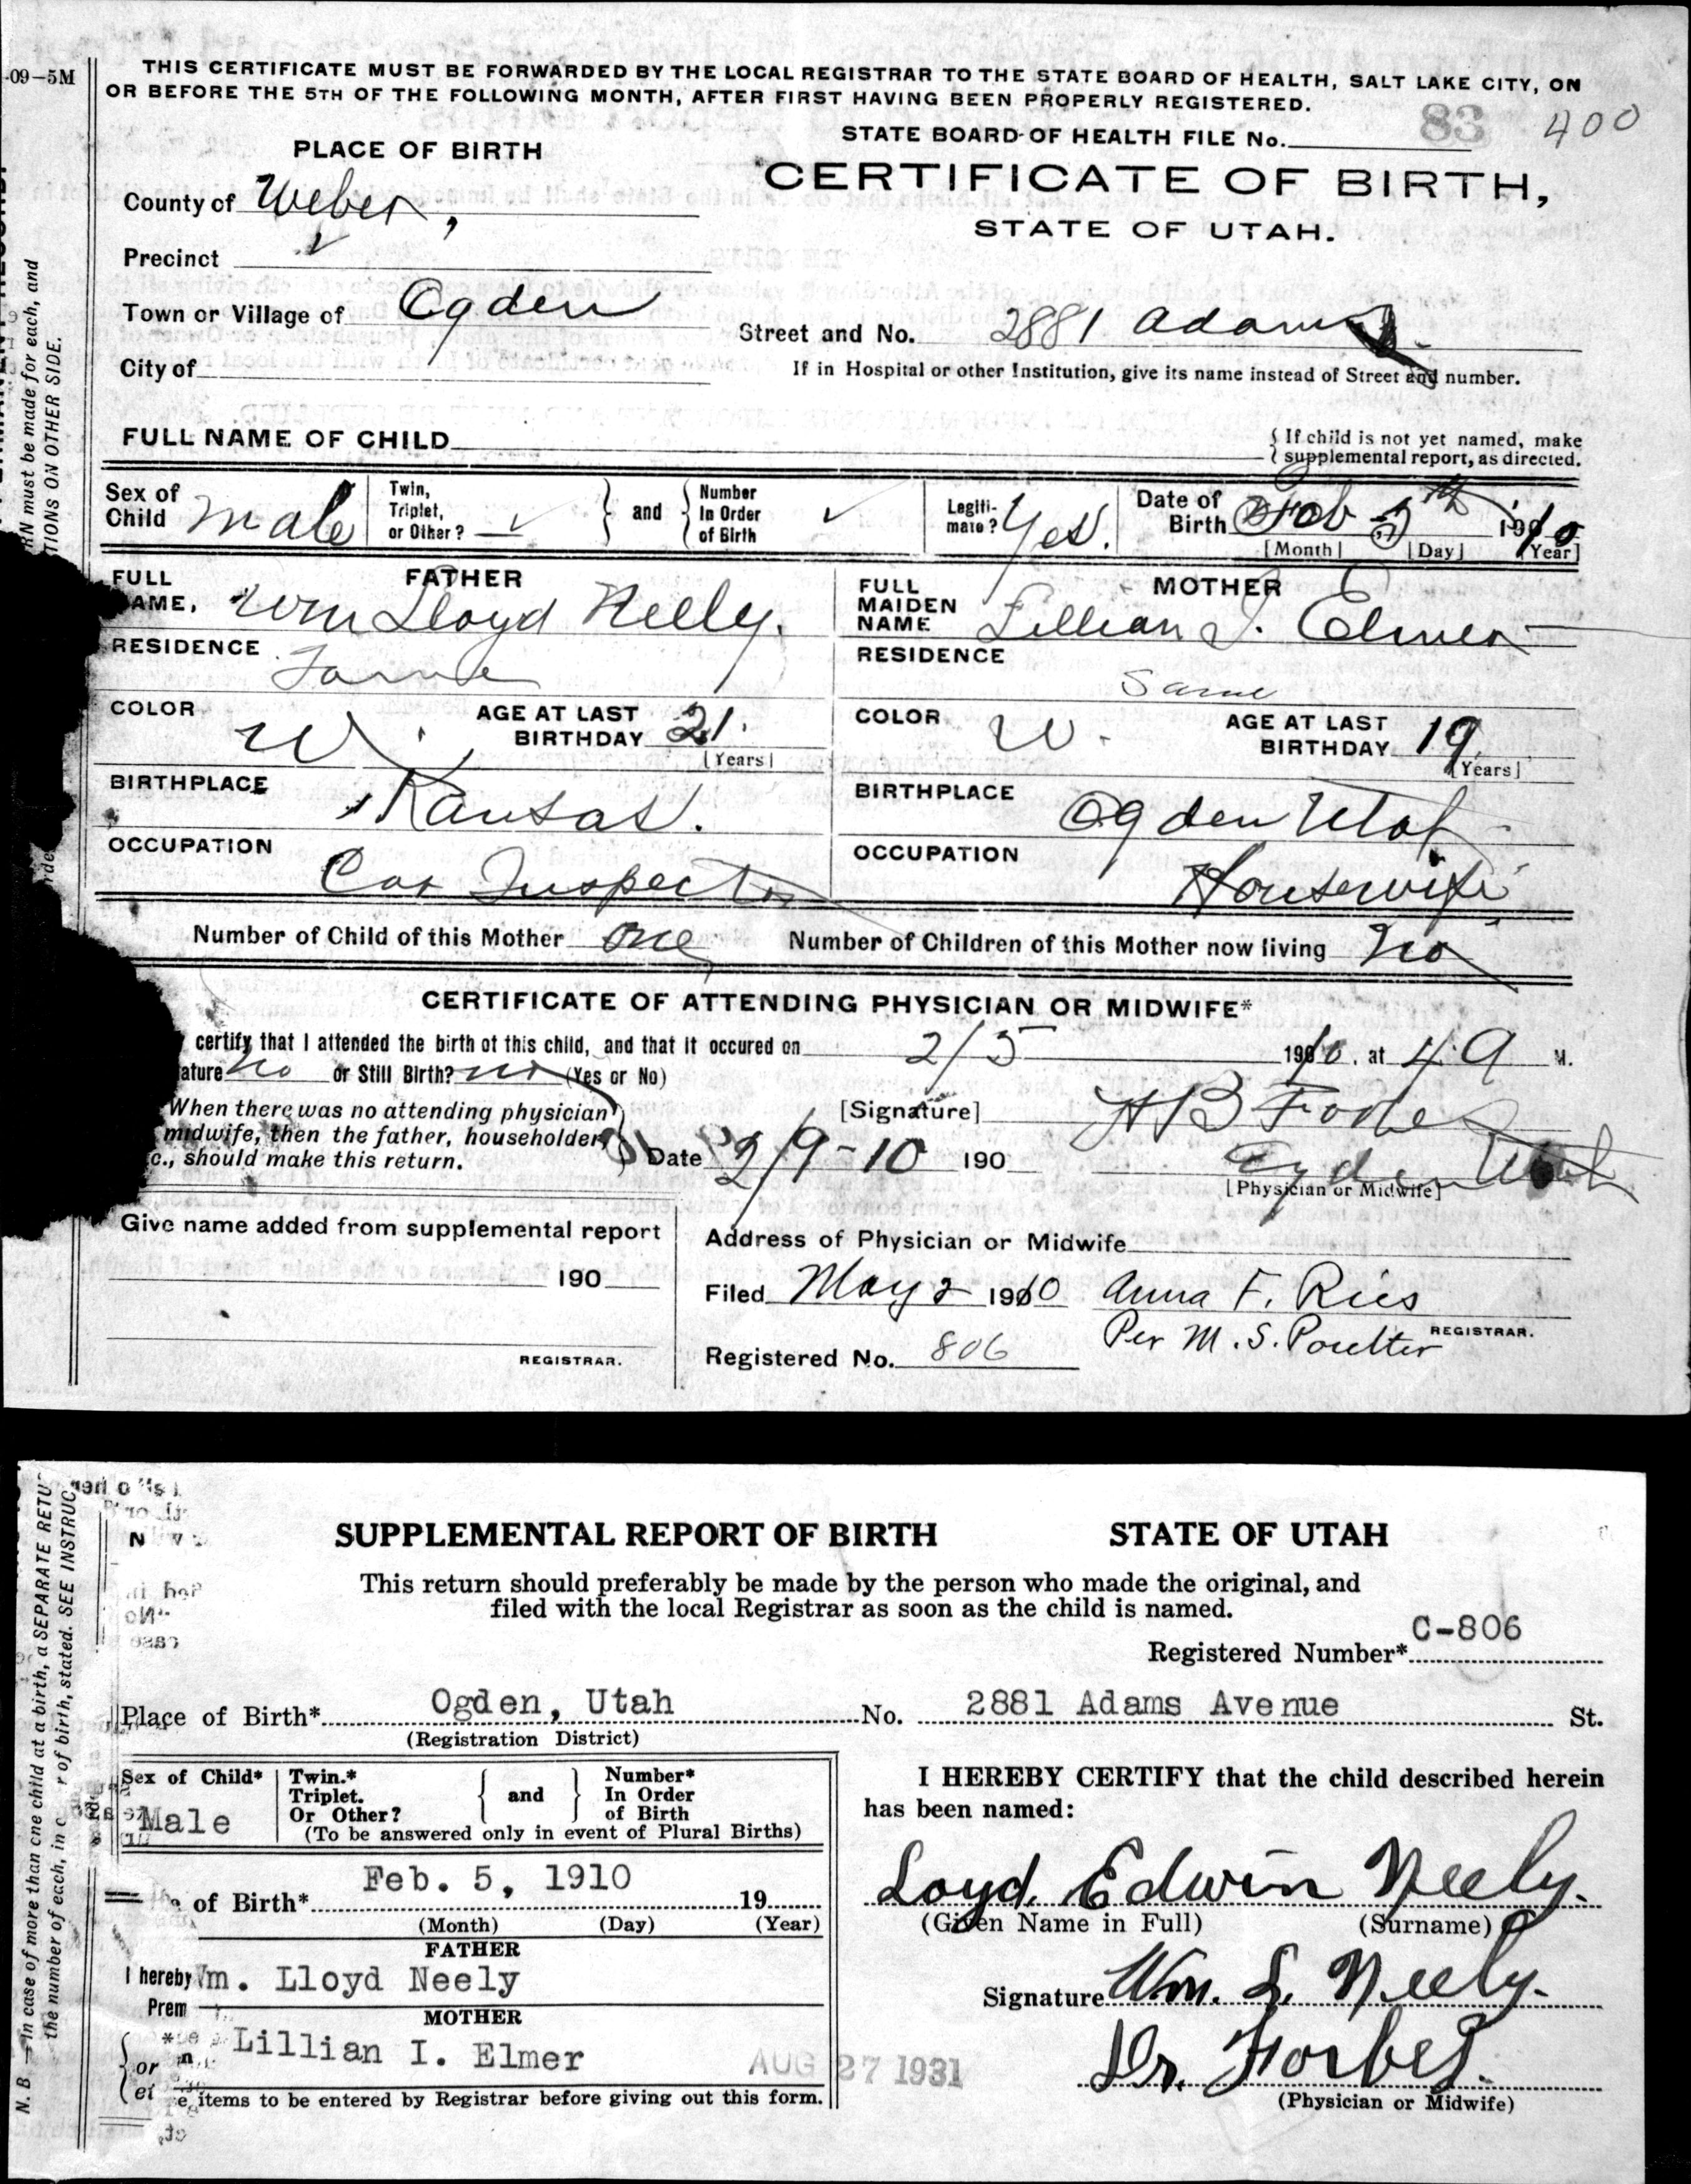 -09-5M
THIS CERTIFICATE MUST BE FORWARDED BY THE LOCAL REGISTRAR TO THE STATE BOARD OF HEALTH, SALT LAKE CITY, ON
OR BEFORE THE 5TH OF THE FOLLOWING MONTH, AFTER FIRST HAVING BEEN PROPERLY REGISTERED.
STATE BOARD OF HEALTH FILE No. 83 400
PLACE OF BIRTH
CERTIFICATE OF BIRTH,
STATE OF UTAH.
County of Weber,
Precinct
Town or Village of Ogden
Street and No. 2881 Adams
City of
If in Hospital or other Institution, give its name instead of Street and number.
FULL NAME OF CHILD
{ If child is not yet named, make
{ supplemental report, as directed.
Sex of Child Male
Twin, Triplet, or Other? ✓ } and { Number In Order of Birth ✓
Legiti-mate? Yes.
Date of Birth Feb 5th 1910
[Month] [Day] [Year]
FATHER
FULL NAME, Wm Lloyd Neely.
MOTHER
FULL MAIDEN NAME Lillian I. Elmer
RESIDENCE Same
RESIDENCE Same
COLOR W. AGE AT LAST BIRTHDAY 21. [Years]
COLOR W. AGE AT LAST BIRTHDAY 19 [Years]
BIRTHPLACE Kansas.
BIRTHPLACE Ogden Utah
OCCUPATION Car Inspector
OCCUPATION Housewife
Number of Child of this Mother One Number of Children of this Mother now living No
CERTIFICATE OF ATTENDING PHYSICIAN OR MIDWIFE*
certify that I attended the birth of this child, and that it occured on 2/5 1910, at 4 A M.
ature No or Still Birth? No (Yes or No)
When there was no attending physician
midwife, then the father, householder,
c., should make this return.
[Signature] H B Forbes
Date 2/9-10 190
Ogden Utah
[Physician or Midwife]
Give name added from supplemental report
190
REGISTRAR.
Address of Physician or Midwife
Filed May 2 1910 Anna F. Ries
Per M. S. Poulter REGISTRAR.
Registered No. 806
RN must be made for each, and
TIONS ON OTHER SIDE.
SUPPLEMENTAL REPORT OF BIRTH STATE OF UTAH
This return should preferably be made by the person who made the original, and
filed with the local Registrar as soon as the child is named.
Registered Number* C-806
Place of Birth* Ogden, Utah No. 2881 Adams Avenue St.
(Registration District)
Sex of Child* Male
Twin.* Triplet. Or Other? { and } Number* In Order of Birth
(To be answered only in event of Plural Births)
I HEREBY CERTIFY that the child described herein
has been named:
of Birth* Feb. 5, 1910 19
(Month) (Day) (Year)
Loyd Edwin Neely.
(Given Name in Full) (Surname)
FATHER
I hereby
Wm. Lloyd Neely
Prem
Signature Wm. L. Neely.
MOTHER
Lillian I. Elmer
AUG 27 1931
Dr. Forbes.
(Physician or Midwife)
or
et
e items to be entered by Registrar before giving out this form.
N. B.—In case of more than one child at a birth, a SEPARATE RETU
the number of each, in o r of birth, stated. SEE INSTRUC